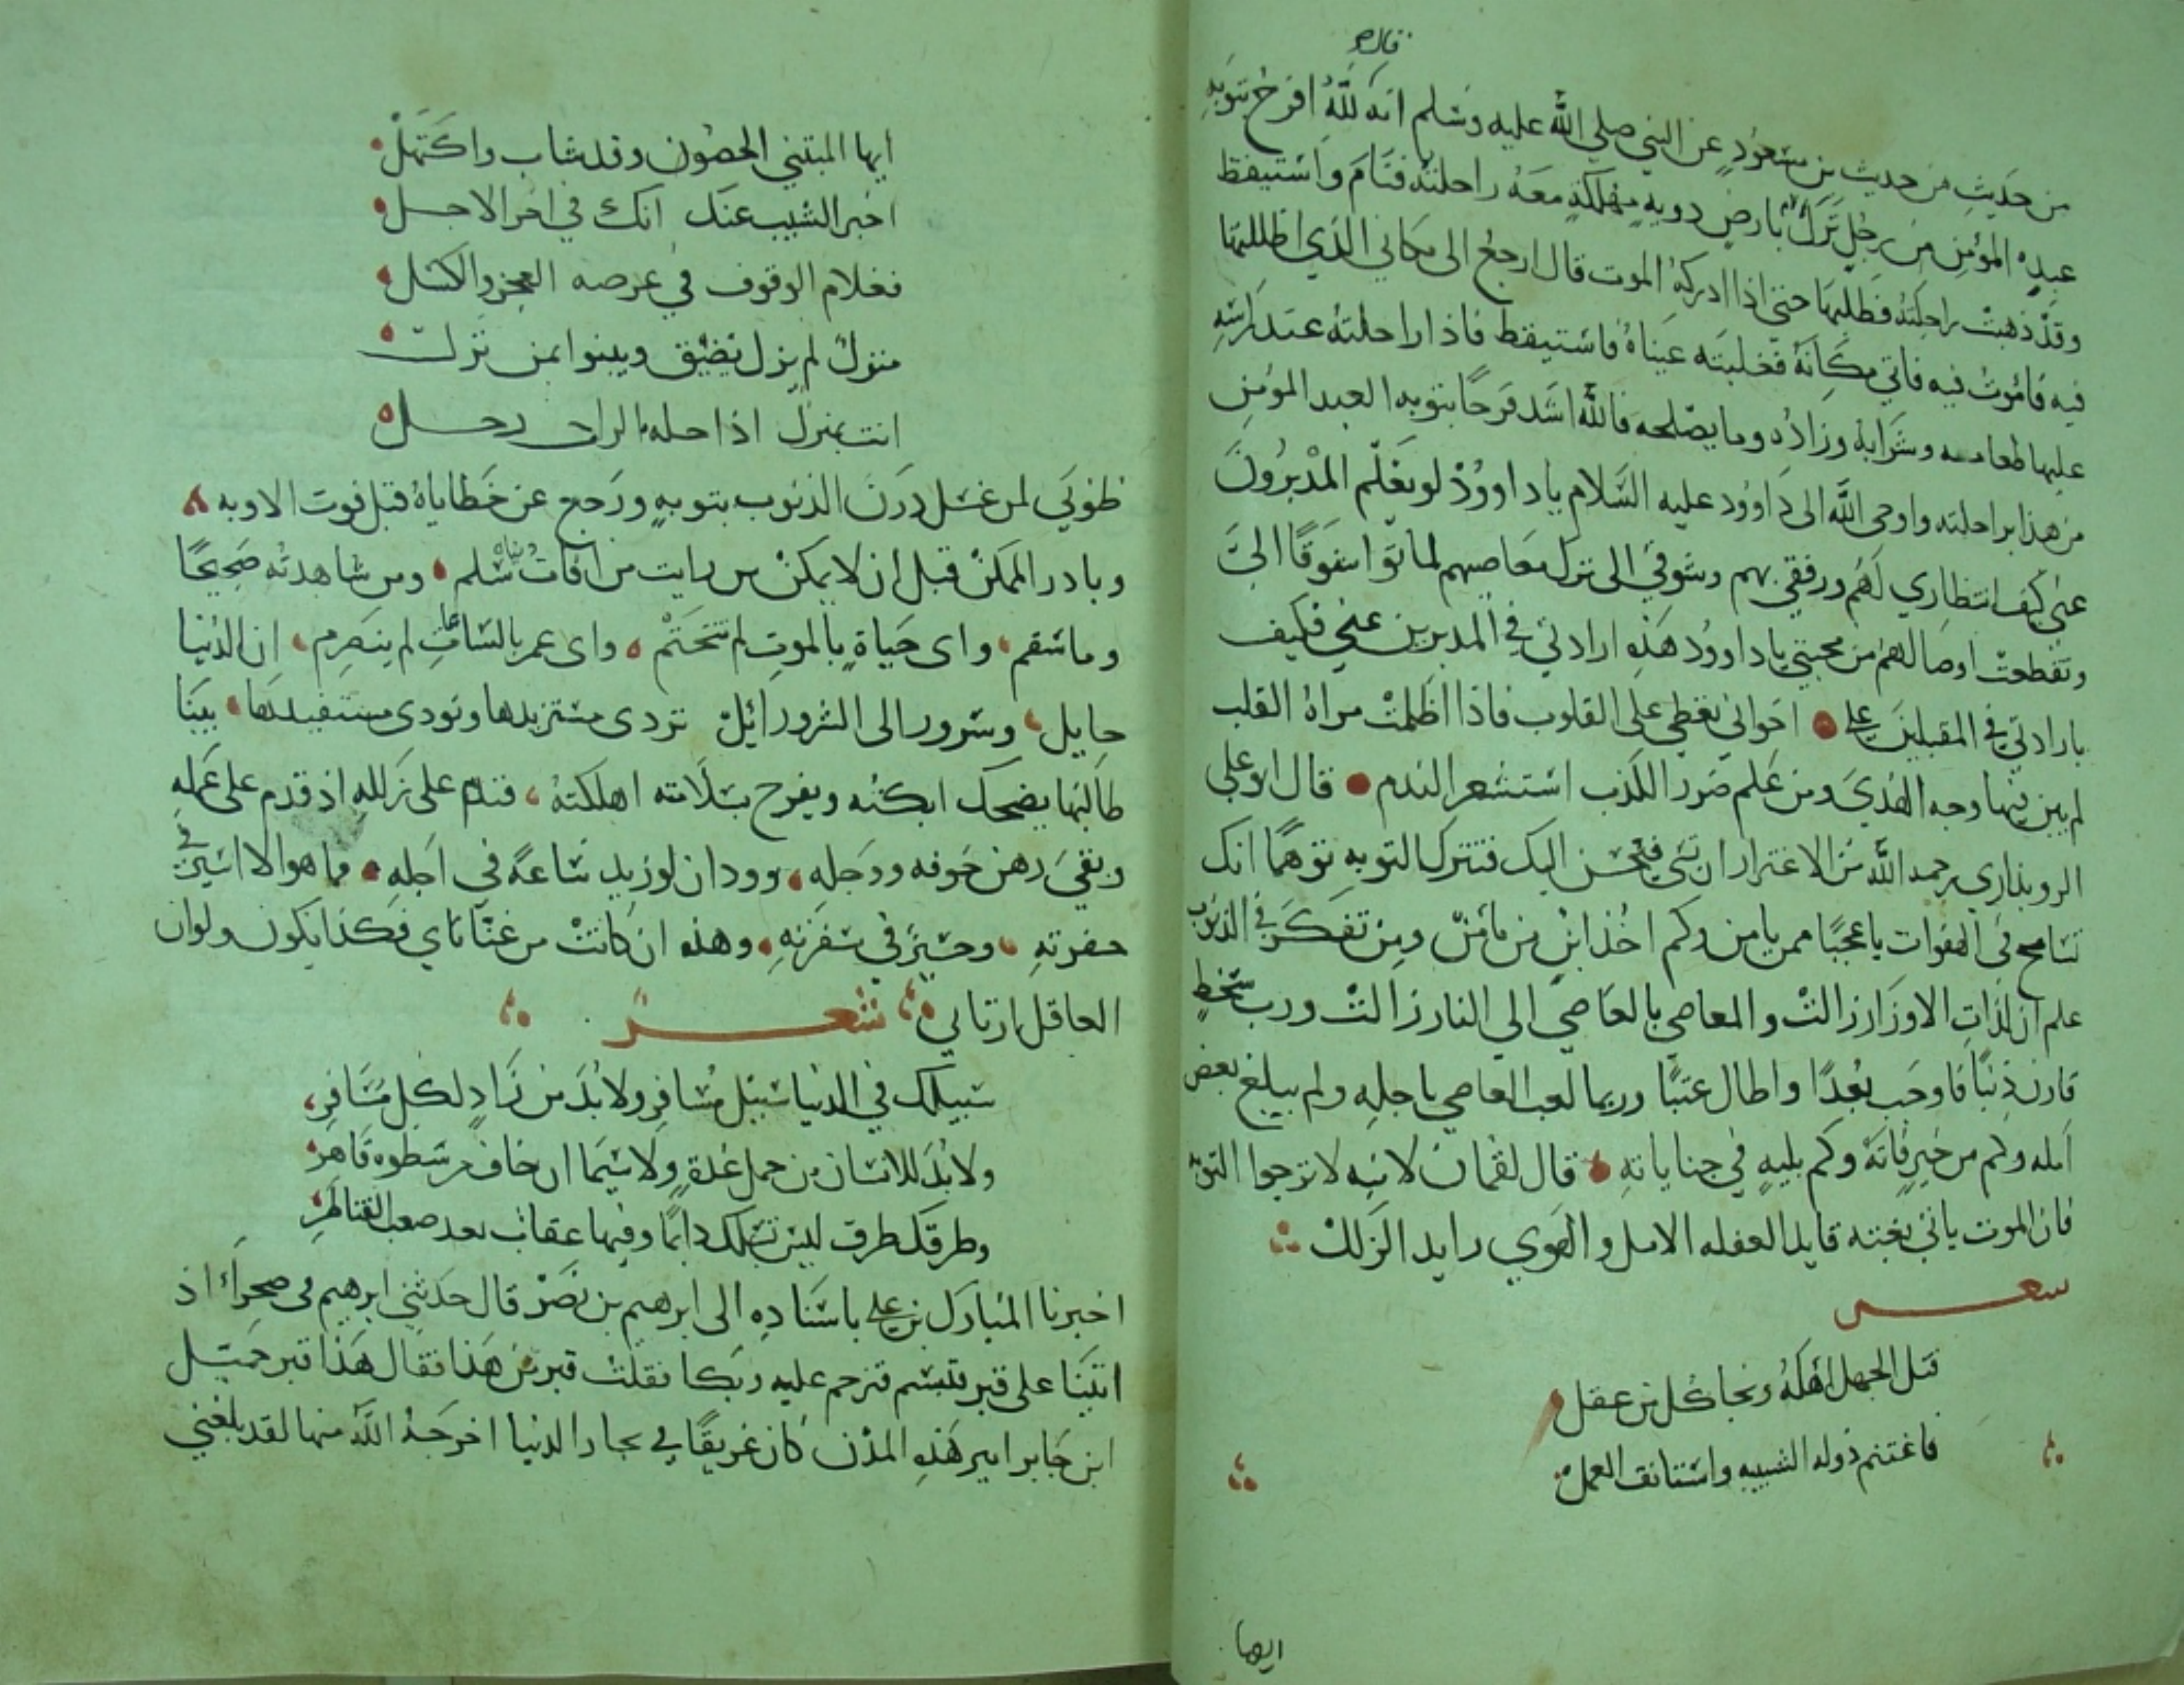 قال
من حديث من حديث بن مسعود عن النبي صلي الله عليه وسلم انه لله افرح بتوبه
عبده المؤمن من رجل نزل بارض دويه مهلكه معه راحلته فنام واستيقظ
وقد ذهبت راحلته فطلبها حتي اذا ادركه الموت قال ارجع الى مكاني الذي اظللتها
فيه فاموت فيه فاتي مكانه فغلبته عيناه فاستيقظ فاذا راحلته عند راسه
عليها طعامه وشرابه وزاده وما يصلحه فالله اشد فرحا بتوبه العبد المؤمن
من هذا براحلته واوحى الله الى داوود عليه السلام ياداوود لو يعلم المدبرون
عني كيف انتظاري لهم ورفقي بهم وشوقي الى ترك معاصيهم لماتوا شوقا الي
وتقطعت اوصالهم من محبتي ياداوود هذه ارادتي في المدبرين عني فكيف
بارادتي في المقبلين علي اخواني نغطي على القلوب فاذا اظلمت مراة القلب
لم يبن فيها وجه الهدي ومن علم ضرر الذنب استشعر الندم قال ابو علي
الروبذاري رحمه الله من الاغترار ان تسي فيحسن اليك فتترك التوبه توهما انك
تسامح في الهفوات ياعجبا ممن يامن وكم اخذ امن من مامن ومن تفكر في الذنوب
علم ان لذات الاوزار زالت والمعاصي بالعاصي الي النار زالت ورب سخط
قارن ذنبا فاوجب بعدا واطال عتبا وربما لعب العاصي باجله ولم يبلغ بعض
امله وكم من خير فاته وكم بليه في جناياته قال لقمان لابنه لا ترجوا التوبه
فان الموت ياتي بغته قايد الغفله الامل والهوي رايد الزلل
شعر
قتل الجهل اهله ونجا كل من عقل
فاغتنم دوله الشبيبه واستانف العمل
ايها
ايها المبتني الحصون وقد شاب واكتهل
اخبر الشيب عنك انك في اخر الاجل
فعلام الوقوف في عرصه العجز والكسل
منزل لم يزل يضيق وينبوا بمن نزل
انت بمنزل اذا حله الراحل رحل
طوبى لمن غسل درن الذنوب بتوبه ورجع عن خطاياه قبل فوت الاوبه
وبادر الممكن قبل ان لا يمكن من رايت من افات دنياه سلم ومن شاهدته صحيحا
وما سقم واى حياة بالموت لم تختم واى عمر بالساعات لم ينصرم ان الدنيا
حايل وسرور الى الشرور ائل تردى مستزيدها وتودى مستفيدها بينا
طالبها يضحك ابكته ويفرح بسلامته اهلكته فندم على زلله اذ قدم على عمله
وبقي رهن خوفه ووجله وود ان لو زيد ساعة في اجله فما هو الا اسير في
حفرته وحسير في سفرته وهذه ان كانت من عنانا ي فكذا يكون ولو ان
العاقل ارتا بي شعر
سبيلك في الدنيا سبيل مسافر ولا بد من زاد لكل مسافر
ولا بد للانسان من حمل عدة ولا سيما ان خاف من سطوه قاهر
وطرقك طرق ليس تسلك دايما وفيها عقاب بعد صعب القناطر
اخبرنا المبارك بن علي باسناده الى ابرهيم بن نصر قال حدثني ابرهيم في صحراء اذ
اتينا على قبر مسنم فترحم عليه وبكا فقلت قبر من هذا فقال هذا قبر حميد
ابن جابر امير هذه المدن كان غريقا في بحار الدنيا اخرجه الله منها لقد بلغني